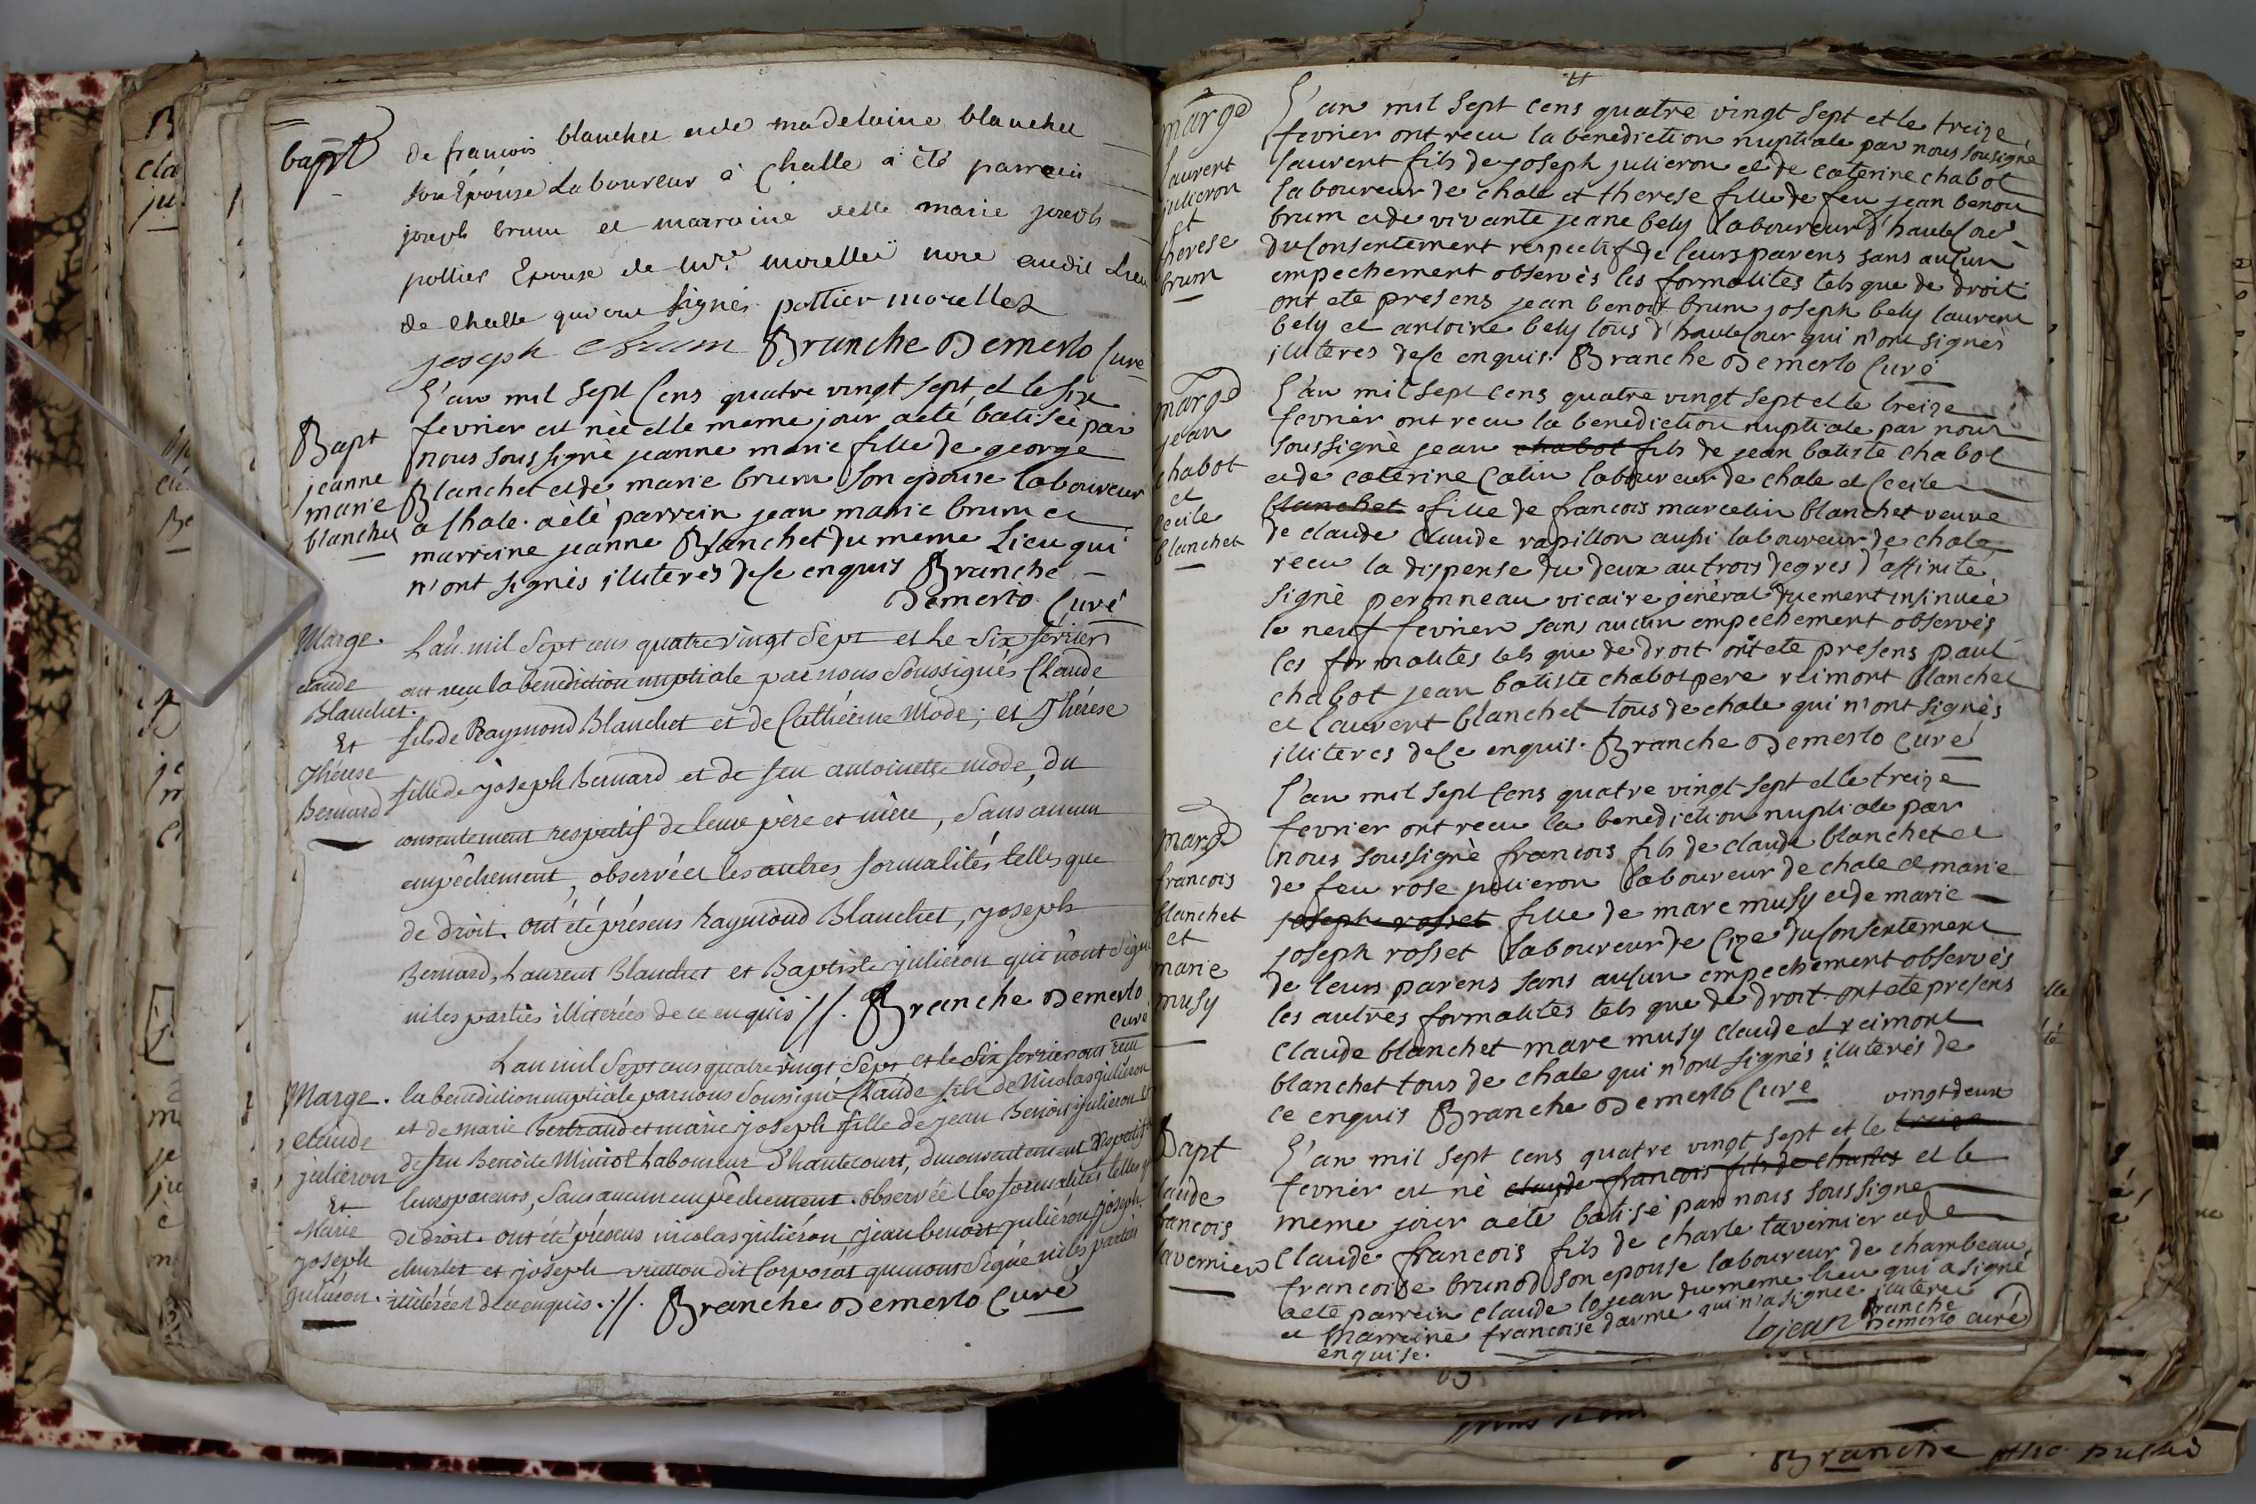 bapt
de francois blanchet et de madelaine blanchet
son Epouse Laboureur à Challe à été parrain
joseph brum et marraine delle marie joseph
pollier Epouse de Mre. morellet nore audit Lieu
de Challe qui ont signés. pollier morellet
joseph Brum Branche Demerlo Curé
Bapt
jeanne
marie
blanchet
L'an mil sept Cens quatre vingt sept et le six
fevrier est née et le meme jour a eté batisée par
nous soussigné jeanne marie fille de george
Blanchet et de marie brum son epouse laboureur
a Chale. a èté parrein jean marie brum et
marreine jeanne Blanchet du meme Lieu qui
n'ont signés illiterés de ce enquis Branche
Demerlo Curé
Marge.
claude
Blanchet.
Et
Thérese
Bernard
L'an mil Sept cens quatre vingt Sept et Le Six fevrier
ont reçu la benediction nuptiale par nous Soussignés Claude
fils de Raymond Blanchet et de Cathérine Mode; et Thérése
fille de joseph Bernard et de feu antoinette mode, du
consentement respectif de leurs père et mère, Sans aucun
empêchement, observées les autres formalités telles que
de droit. ont été présens Raymond Blanchet, joseph
Bernard, Laurent Blanchet et Baptiste juliéron qui n'ont Signé
ni les parties illiterées de ce enquis //. Branche Demerlo
Curé
Marge.
claude
julieron
Et
Marie
joseph
juliéron.
L'an mil Sept cens quatre vingt Sept et le Six fevrier ont reçu
la benediction nuptiale par nous Soussigné Claude fils de Nicolas juliéron
et de marie Bertrand et marie joseph fille de jean Benoit julieron et
de feu Benoite Laboureur d'hautecourt, du consentement respectif de
leurs parents, Sans aucun empêchement. observées les formalités telles que
de droit. ont été présens nicolas juliéron, jean benoit juliéron, joseph
charlet et joseph dit Corporat qui n'ont Signé ni les parties
illitérées de ce enquis. //. Branche Demerlo Curé
marge
laurent
julieron
et
therese
brum
L'an mil sept cens quatre vingt sept et le treize
fevrier ont recu la benediction nuptiale par nous sousigné
laurent fils de joseph julieron et de caterine chabot
laboureur de chale et therese fille de feu jean benoit
brum et de vivante jeane bely laboureur d'hautecour
du Consentement respectif de leurs parens sans aucun
empechement observés les formalites tels que de droit
ont eté presens jean benoit brum joseph bely laurent
bely et antoine bely tous d'hautecour qui n'ont signés
illiteres de ce enquis. Branche Demerlo Curé
marge
jean
chabot
et
cecile
blanchet
L'an mil sept cens quatre vingt sept et le treize
fevrier ont recu la benediction nuptiale par nous
soussigné jean chabot fils de jean batiste chabot
et de caterine Catin laboureur de chale et Cecile
blanchet fille de francois marcelin blanchet veuve
de claude Claude rapillon aussi laboureur de chale,
recu la dispense du deux au trois degres d'affinité
signé peronneau vicaire général duement insinuée
le neuf fevrier sans aucun empechement observés
les formalites tels que de droit ont eté presens paul
chabot jean batiste chabot pere reimont blanchet
et laurent blanchet tous de chale qui n'ont signés
illiteres de ce enquis. Branche Demerlo Curé
marge
francois
blanchet
et
marie
musy
L'an mil sept Cens quatre vingt sept et le treize
fevrier ont recu la benediction nuptiale par
nous soussigné francois fils de claude blanchet et
de feu rose julieron laboureur de chale et marie
joseph rosset fille de marc musy et de marie
joseph rosset laboureur de Cize du Consentement
de leurs parens sans aucun empechement observés
les autres formalites tels que de droit. ont eté presens
claude blanchet marc musy claude et reimont
blanchet tous de chale qui n'ont signés illiterés de
ce enquis Branche Demerlo Curé
Bapt
claude
francois
tavernier
vingt deux
L'an mil sept cens quatre vingt sept et le treize
fevrier est né claude francois fils de charles et le
meme jour a eté batisé par nous soussigné
Claude francois fils de charle tavernier et de
francoise brunod son epouse laboureur de chambeau
a eté parrein claude lojean du meme lieu qui a signé
et marreine francoise darme qui n'a signée illitere
enquise. lojean Branche Demerlo curé
Branche